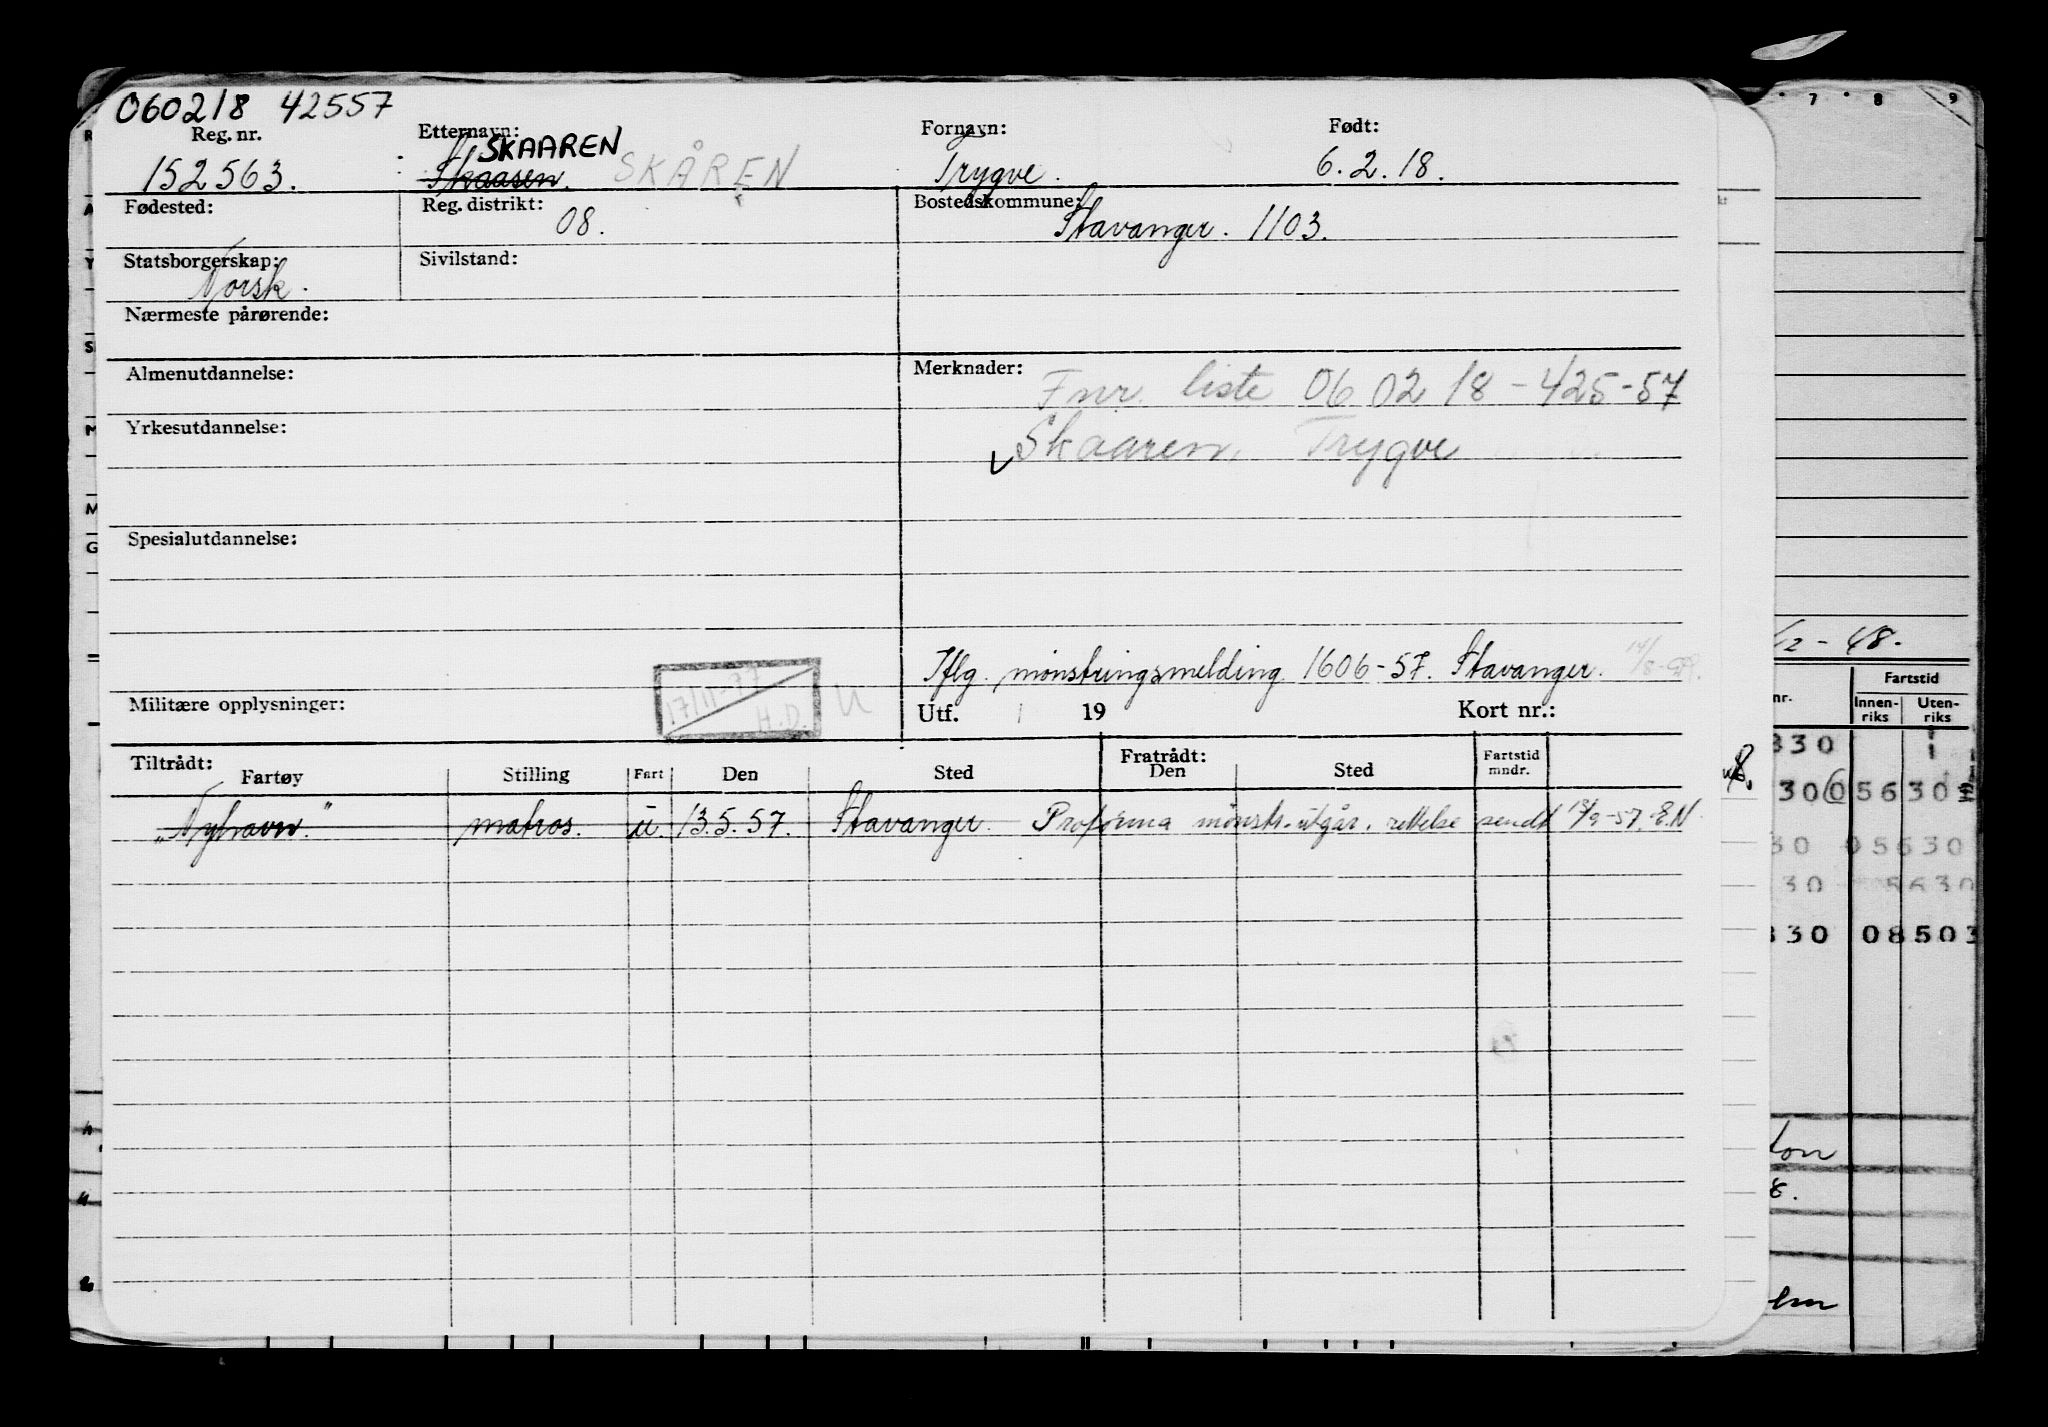 060218 42557
Reg. nr. Etternavn: Fornavn: Født:
SKAAREN
152563. Skaasen. SKÅREN Trygve. 6.2.18.
Fødested: Reg. distrikt: 08. Bostedskommune: Stavanger. 1103.
Statsborgerskap: Norsk. Sivilstand:
Nærmeste pårørende:
Almenutdannelse: Merknader: Fnr. liste 06 02 18-425-57
Yrkesutdannelse: Skaaren, Trygve
Spesialutdannelse:
Iflg. mønstringsmelding 1606-57. Stavanger. 14/8-
Militære opplysninger: 17/11-77 H.D. U Utf. 19 Kort nr.:
Tiltrådt: Fratrådt:
Fartøy Stilling Fart Den Sted Den Sted Fartstid mndr.
"Nyhavn." matros. u. 13.5.57. Stavanger. Proforma mønstr. utgår, rettelse sendt 13/9-57. E.N
7 8 9
/2-48.
nr. Fartstid
Innen-riks Uten-riks
330
30 0 56 30
30 05630
30 5630
330 08503
ton
8.